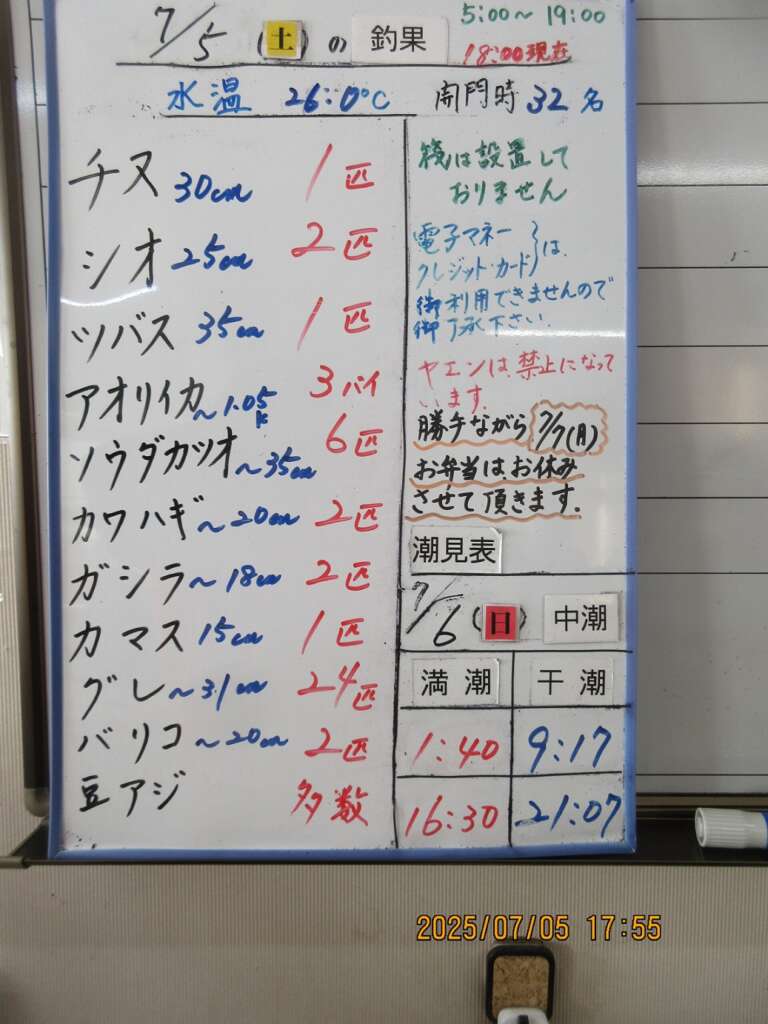 7/5(土)の 釣果
5:00～19:00
18:00現在
水温 26:0℃ 開門時 32名
チヌ 30cm 1匹
シオ 25cm 2匹
ツバス 35cm 1匹
アオリイカ～1.05k 3バイ
ソウダカツオ～35cm 6匹
カワハギ～20cm 2匹
ガシラ～18cm 2匹
カマス 15cm 1匹
グレ～31cm 24匹
バリコ～20cm 2匹
豆アジ 多数
筏は設置して
おりません
電子マネー
クレジット・カード}は、
御利用できませんので
御了承下さい.
ヤエンは、禁止になって
います.
勝手ながら 7/7(月)
お弁当は、お休み
させて頂きます.
潮見表
7/6(日) 中潮
満潮 干潮
1:40 9:17
16:30 21:07
2025/07/05 17:55